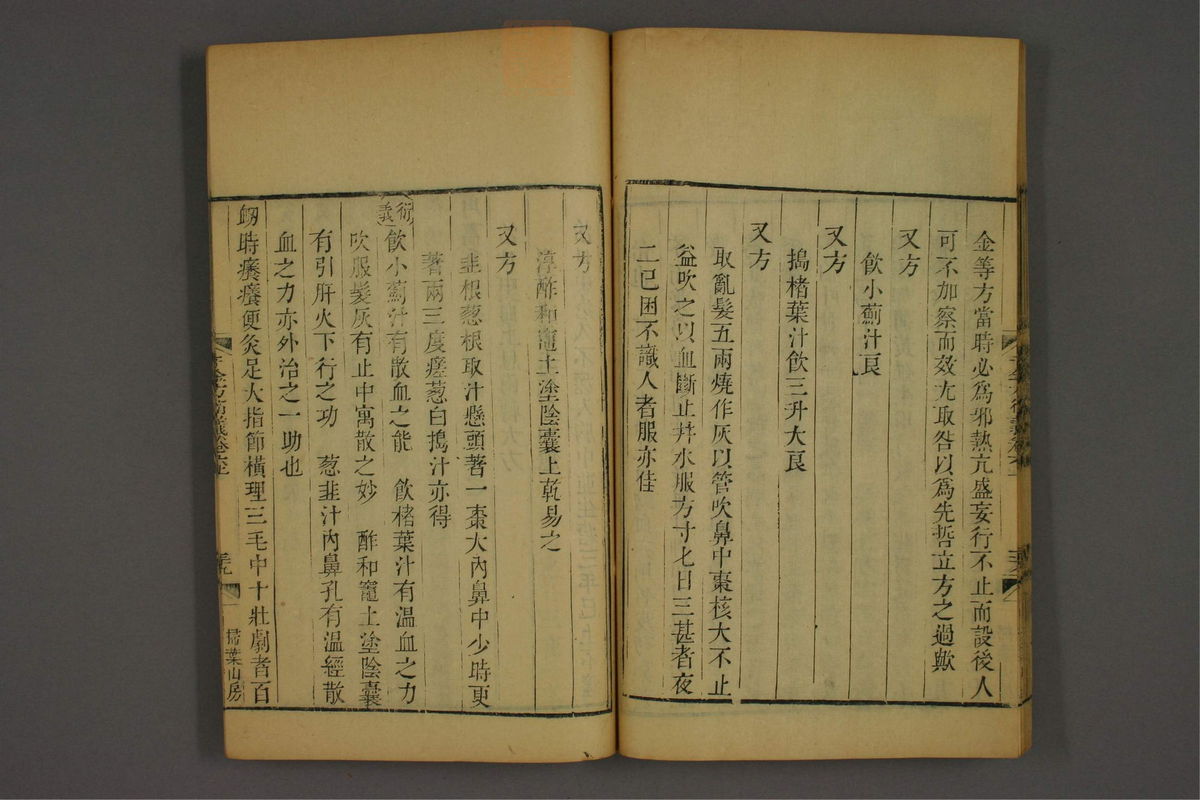 金等方當時必爲邪熱亢盛妄行不止而設後人
可不加察而效尤取咎以爲先哲立方之過歟
又方
飲小薊汁良
又方
搗楮葉汁飲三升大良
又方
取亂髮五兩燒作灰以管吹鼻中棗核大不止
益吹之以血斷止井水服方寸匕日三甚者夜
二已困不識人者服亦佳
又方
淳酢和竈土塗陰囊上乾易之
又方
韭根葱根取汁懸頭著一棗大內鼻中少時更
著兩三度瘥葱白搗汁亦得
衍義
飲小薊汁有散血之能 飲楮葉汁有温血之力
吹服髮灰有止中寓散之妙 酢和竈土塗陰囊
有引肝火下行之功 葱韭汁內鼻孔有温經散
血之力亦外治之一助也
衂時癢癢便灸足大指節橫理三毛中十壯劇者百
千金方衍義卷六
掃葉山房